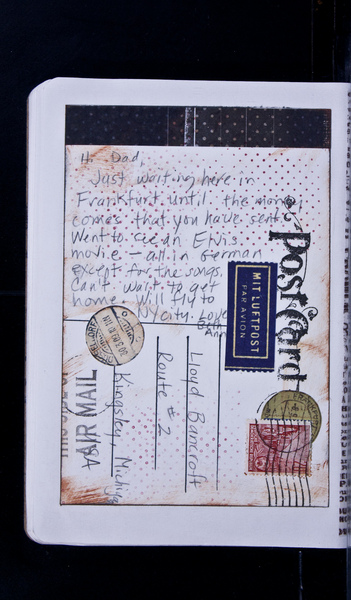 Hi Dad,
Just waiting here in
Frankfurt until the money
comes that you have sent.
Went to see an Elvis
movie - all in German
except for the songs.
Can't wait to get
home. Will fly to
NYCity. Love
Beth
Ann
Postcard
MIT LUFTPOST
PAR AVION
VIA AIR MAIL
Lloyd Bancroft
Route #2
Kingsley, Michiga